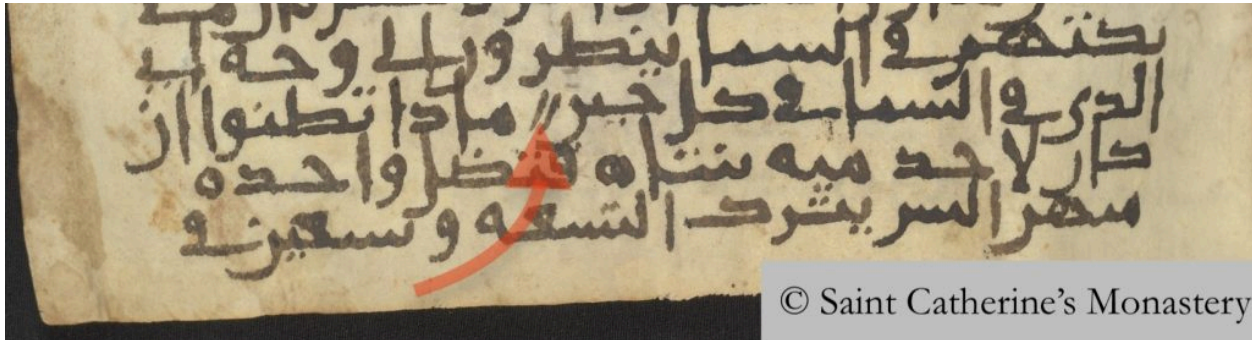 يكتهم في السما ينظرون الى وجه ابي
الدي في السما في كل حين // مادا تظنوا ان
كان لاحد ميه شاه فتضل واحده
منهن اليس يترك التسعه وتسعين في
© Saint Catherine's Monastery